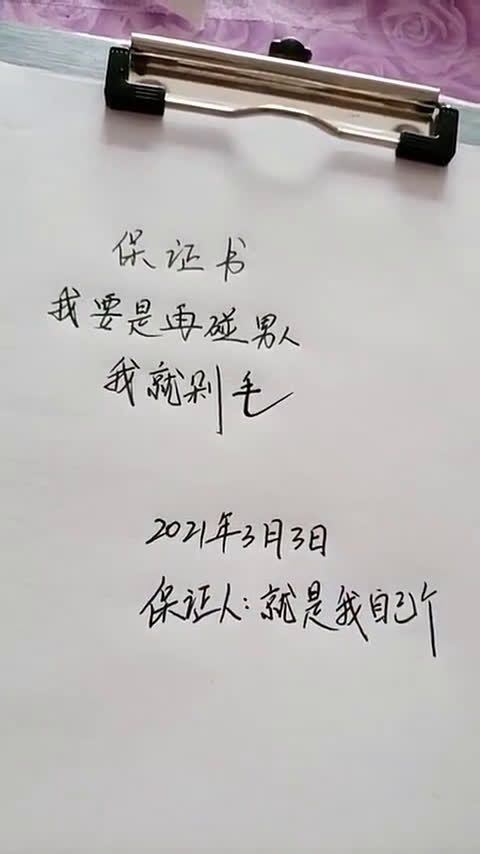 保证书
我要是再碰男人
我就剁毛
2021年3月3日
保证人:就是我自己个